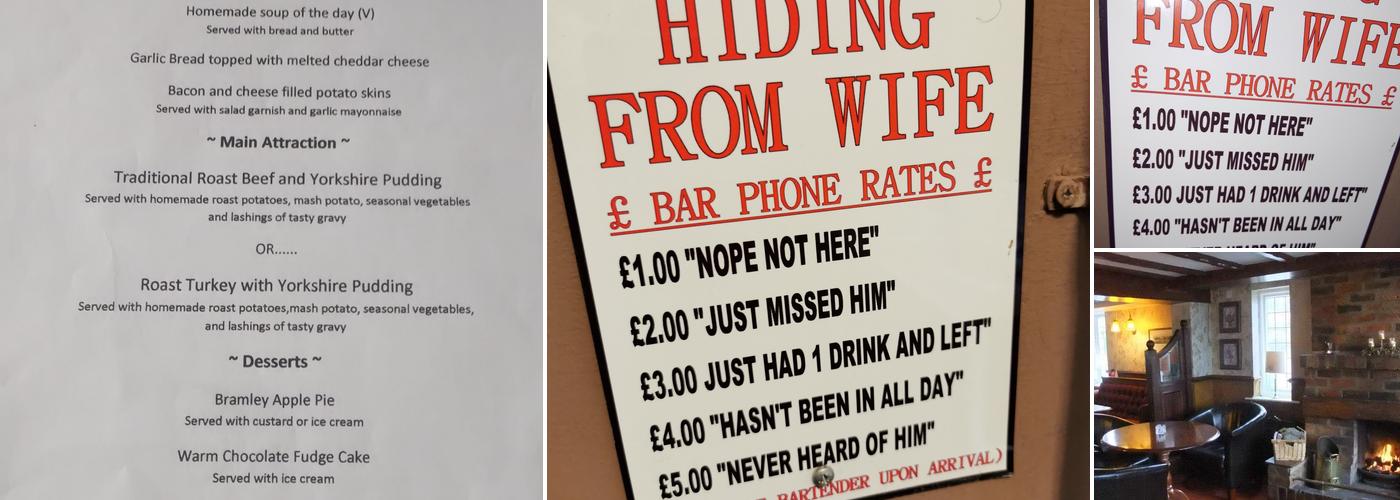 Homemade soup of the day (V)
Served with bread and butter
Garlic Bread topped with melted cheddar cheese
Bacon and cheese filled potato skins
Served with salad garnish and garlic mayonnaise
~ Main Attraction ~
Traditional Roast Beef and Yorkshire Pudding
Served with homemade roast potatoes, mash potato, seasonal vegetables
and lashings of tasty gravy
OR......
Roast Turkey with Yorkshire Pudding
Served with homemade roast potatoes,mash potato, seasonal vegetables,
and lashings of tasty gravy
~ Desserts ~
Bramley Apple Pie
Served with custard or ice cream
Warm Chocolate Fudge Cake
Served with ice cream
HIDING
FROM WIFE
£ BAR PHONE RATES £
£1.00 "NOPE NOT HERE"
£2.00 "JUST MISSED HIM"
£3.00 JUST HAD 1 DRINK AND LEFT"
£4.00 "HASN'T BEEN IN ALL DAY"
£5.00 "NEVER HEARD OF HIM"
BARTENDER UPON ARRIVAL)
FROM WIFE
£ BAR PHONE RATES £
£1.00 "NOPE NOT HERE"
£2.00 "JUST MISSED HIM"
£3.00 JUST HAD 1 DRINK AND LEFT"
£4.00 "HASN'T BEEN IN ALL DAY"